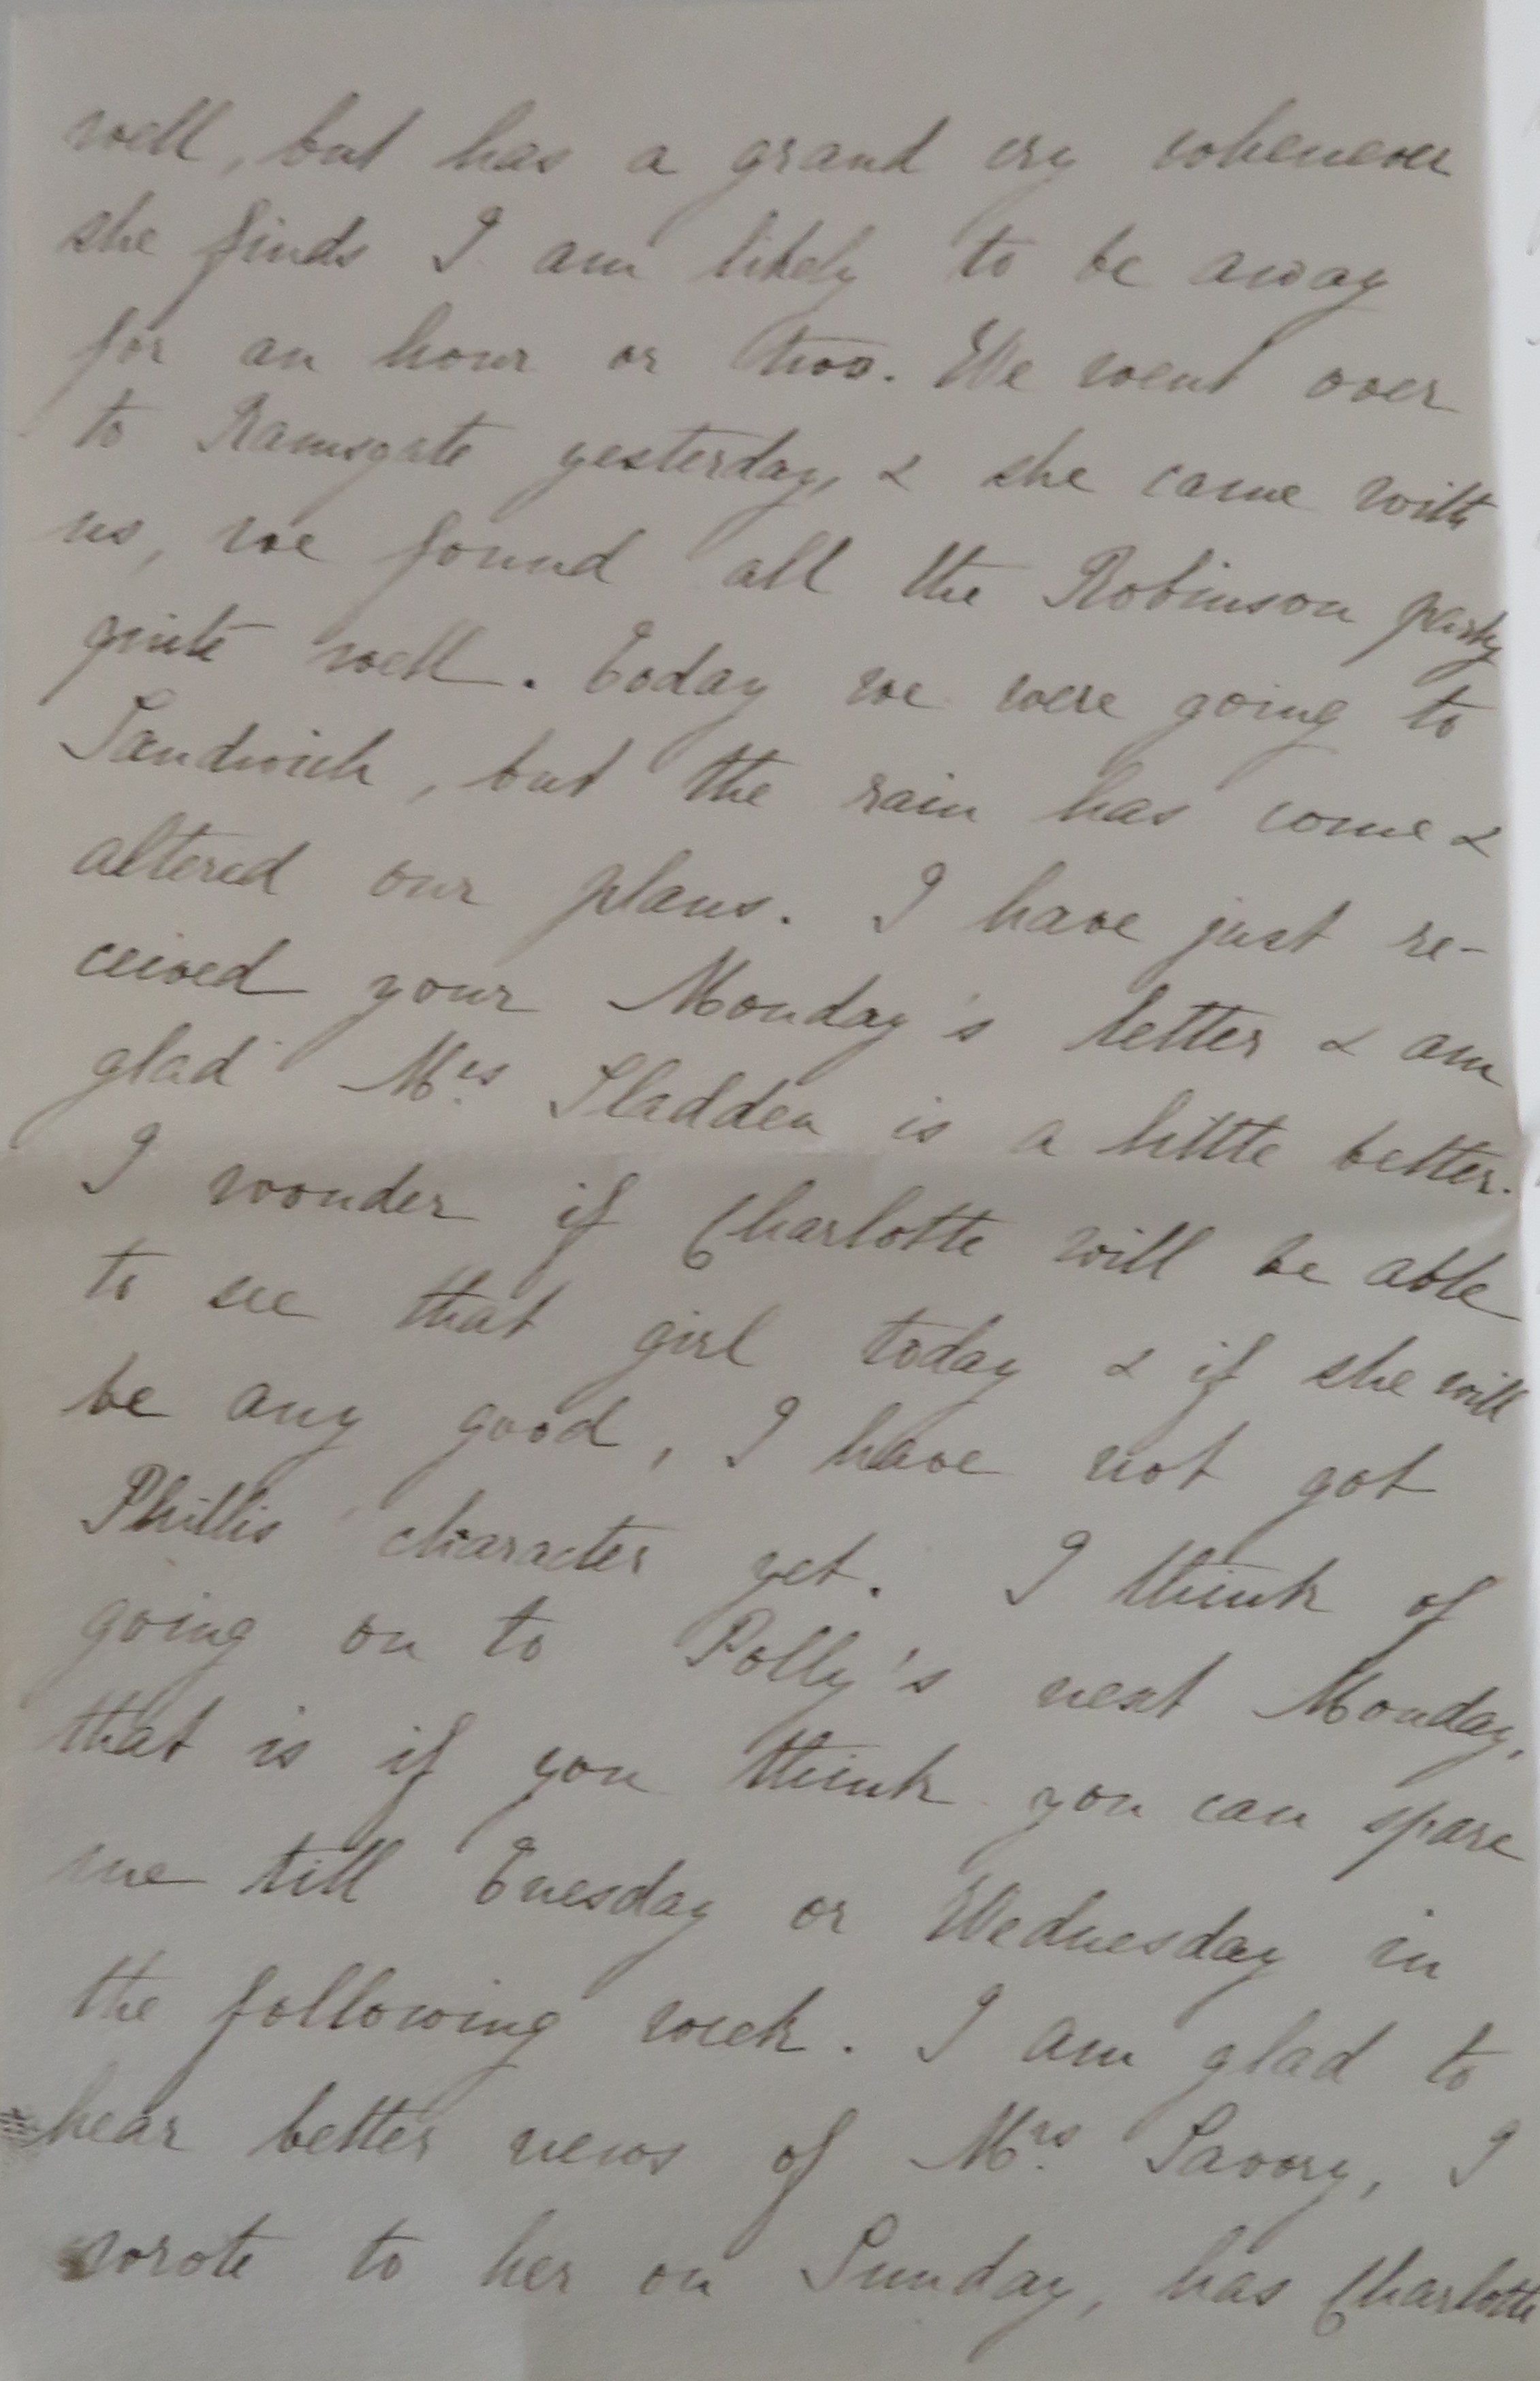 well, but has a grand cry whenever
she finds I am likely to be away
for an hour or two. We went over
to Ramsgate yesterday, & she came with
us, we found all the Robinson party
quite well. Today we were going to
Sandwich, but the rain has come &
altered our plans. I have just re-
ceived your Monday's letter & am
glad Mrs. Sladden is a little better.
I wonder if Charlotte will be able
to see that girl today & if she will
be any good, I have not got
Phillis' character yet. I think of
going on to Polly's next Monday,
that is if you think you can spare
me till Tuesday or Wednesday in
the following week. I am glad to
hear better news of Mrs. Savory, I
wrote to her on Sunday, has Charlotte